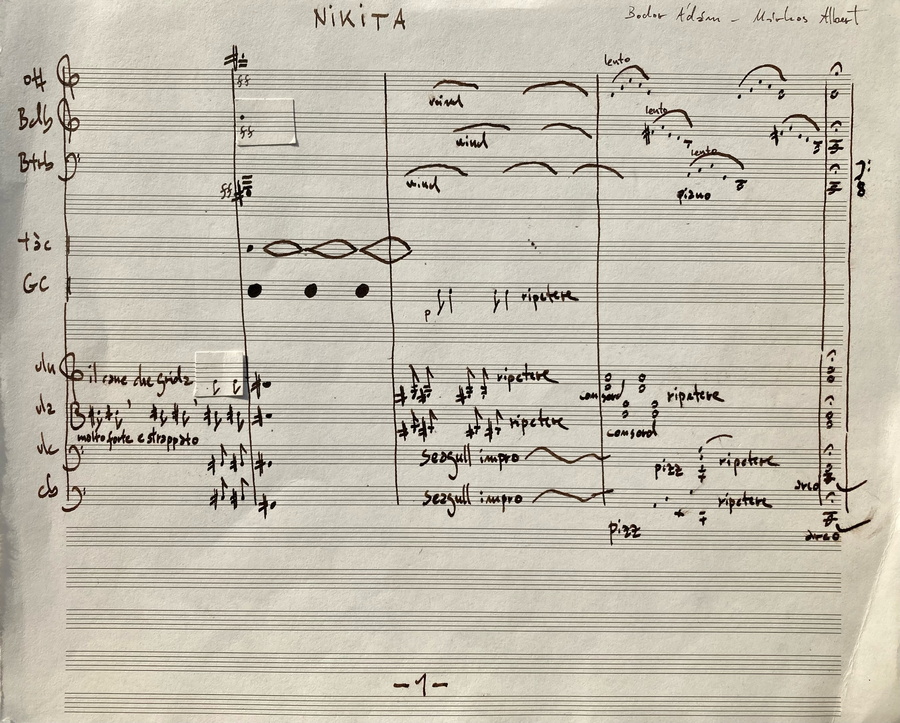 NIKITA
Bodor Ádám - Márkos Albert
ott
ff
lento
wind
Bdb
ff
lento
wind
Btrb
lento
wind
ff
piano
tåc
GC
p
ripetere
vln
il cane che grida
ripetere
consord
ripetere
vlz
molto forte e strappato
ripetere
consord
vlc
Seagull impro
pizz
ripetere
arco
cb
Seagull impro
ripetere
pizz
arco
-1-